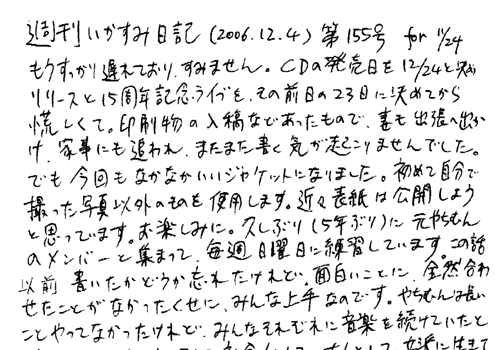 週刊いかすみ日記 (2006.12.4) 第155号 for 11/24
もうすっかり遅れており、すみません。CDの発売日を12/24と決め
リリースと15周年記念ライブを、その前日の23日に決めてから
慌しくて。印刷物の入稿などあったもので、妻も出張へ出か
け、家事にも追われ、またまた書く気が起こりませんでした。
でも今回もなかなかいいジャケットになりました。初めて自分で
撮った写真以外のものを使用します。近々表紙は公開しよう
と思っています。お楽しみに。久しぶり(5年ぶり)に元やちむん
のメンバーと集まって、毎週日曜日に練習しています。この話
以前書いたかどうか忘れたけれど、面白いことに、全然合わ
せたことがなかったくせに、みんな上手なのです。やちむんは長い
ことやってなかったけれど、みんなそれぞれに音楽を続けていたと